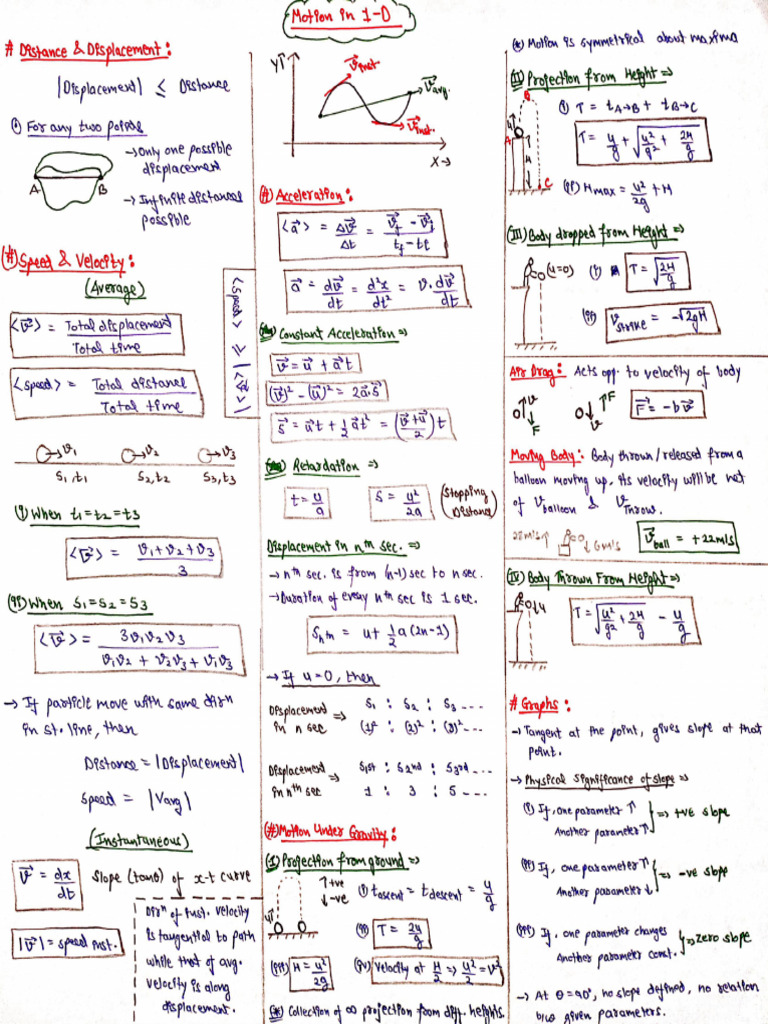 Motion in 1-D
# Distance & Displacement:
|Displacement| ≤ Distance
For any two points
A B
→ Only one possible
displacement
→ Infinite distances
possible
(#) Speed & Velocity:
(Average)
<v⃗> = Total displacement / Total time
<speed> = Total distance / Total time
<speed> ≥ |<v⃗>|
v₁ v₂ v₃
S₁,t₁ S₂,t₂ S₃,t₃
(i) When t₁=t₂=t₃
<v⃗> = (v₁+v₂+v₃) / 3
(ii) When S₁=S₂=S₃
<v⃗> = 3v₁v₂v₃ / (v₁v₂ + v₂v₃ + v₁v₃)
→ If particle move with same dirⁿ
in st. line, then
Distance = |Displacement|
Speed = |Vavg|
(Instantaneous)
v⃗ = dx/dt
Slope (tanθ) of x-t curve
|v⃗| = speed inst.
Dirⁿ of inst. velocity
is tangential to path
while that of avg.
velocity is along
displacement.
Y↑
v⃗inst.
v⃗avg.
v⃗inst.
X→
(#) Acceleration:
<a⃗> = Δv⃗/Δt = (v⃗f - v⃗i) / (tf - ti)
a⃗ = dv⃗/dt = d²x/dt² = v.dv⃗/dx
Constant Acceleration ⇒
v⃗ = u⃗ + a⃗t
(v⃗)² - (u⃗)² = 2a⃗.s⃗
s⃗ = u⃗t + 1/2 a⃗t² = ((v⃗+u⃗)/2)t
Retardation ⇒
t = u/a
S = u²/2a
(Stopping
Distance)
Displacement in nth sec. ⇒
→ nth sec. is from (n-1) sec to n sec.
→ Duration of every nth sec is 1 sec.
Snth = u + 1/2 a(2n-1)
→ If u=0, then
Displacement
in n sec ⇒ S₁ : S₂ : S₃ ....
(1)² : (2)² : (3)² ...
Displacement
in nth sec ⇒ S1st : S2nd : S3rd ...
1 : 3 : 5 - ...
(#) Motion Under Gravity:
(I) Projection from ground ⇒
u↑
↑+ve
↓-ve
(i) tascent = tdescent = u/g
(ii) T = 2u/g
(iii) H = u²/2g
(iv) Velocity at H/2 ⇒ u²/2 = v²
(*) Collection of ∞ projection from diff. heights.
(*) Motion is symmetrical about maxima
(II) Projection from Height ⇒
u A B H C
(i) T = tA→B + tB→C
T = u/g + √(u²/g² + 2H/g)
(ii) Hmax = u²/2g + H
(III) Body dropped from Height ⇒
(u=0)
(i) T = √(2H/g)
(ii) v⃗strike = -√2gH
Air Drag: Acts opp. to velocity of body
v F F v
F⃗ = -bv⃗
Moving Body: Body thrown / released from a
balloon moving up, its velocity will be net
of Vballoon & Vthrow.
28m/s↑ ↓6m/s
v⃗ball = +22m/s
(IV) Body Thrown From Height ⇒
u
T = √(u²/g² + 2H/g) - u/g
# Graphs:
→ Tangent at the point, gives slope at that
point.
→ Physical Significance of slope ⇒
(i) If, one parameter ↑
Another parameter ↑ ⇒ +ve slope
(ii) If, one parameter ↑
Another parameter ↓ ⇒ -ve slope
(iii) If, one parameter changes
Another parameter const. ⇒ zero slope
→ At θ=90°, no slope defined, no relation
b/w given parameters.